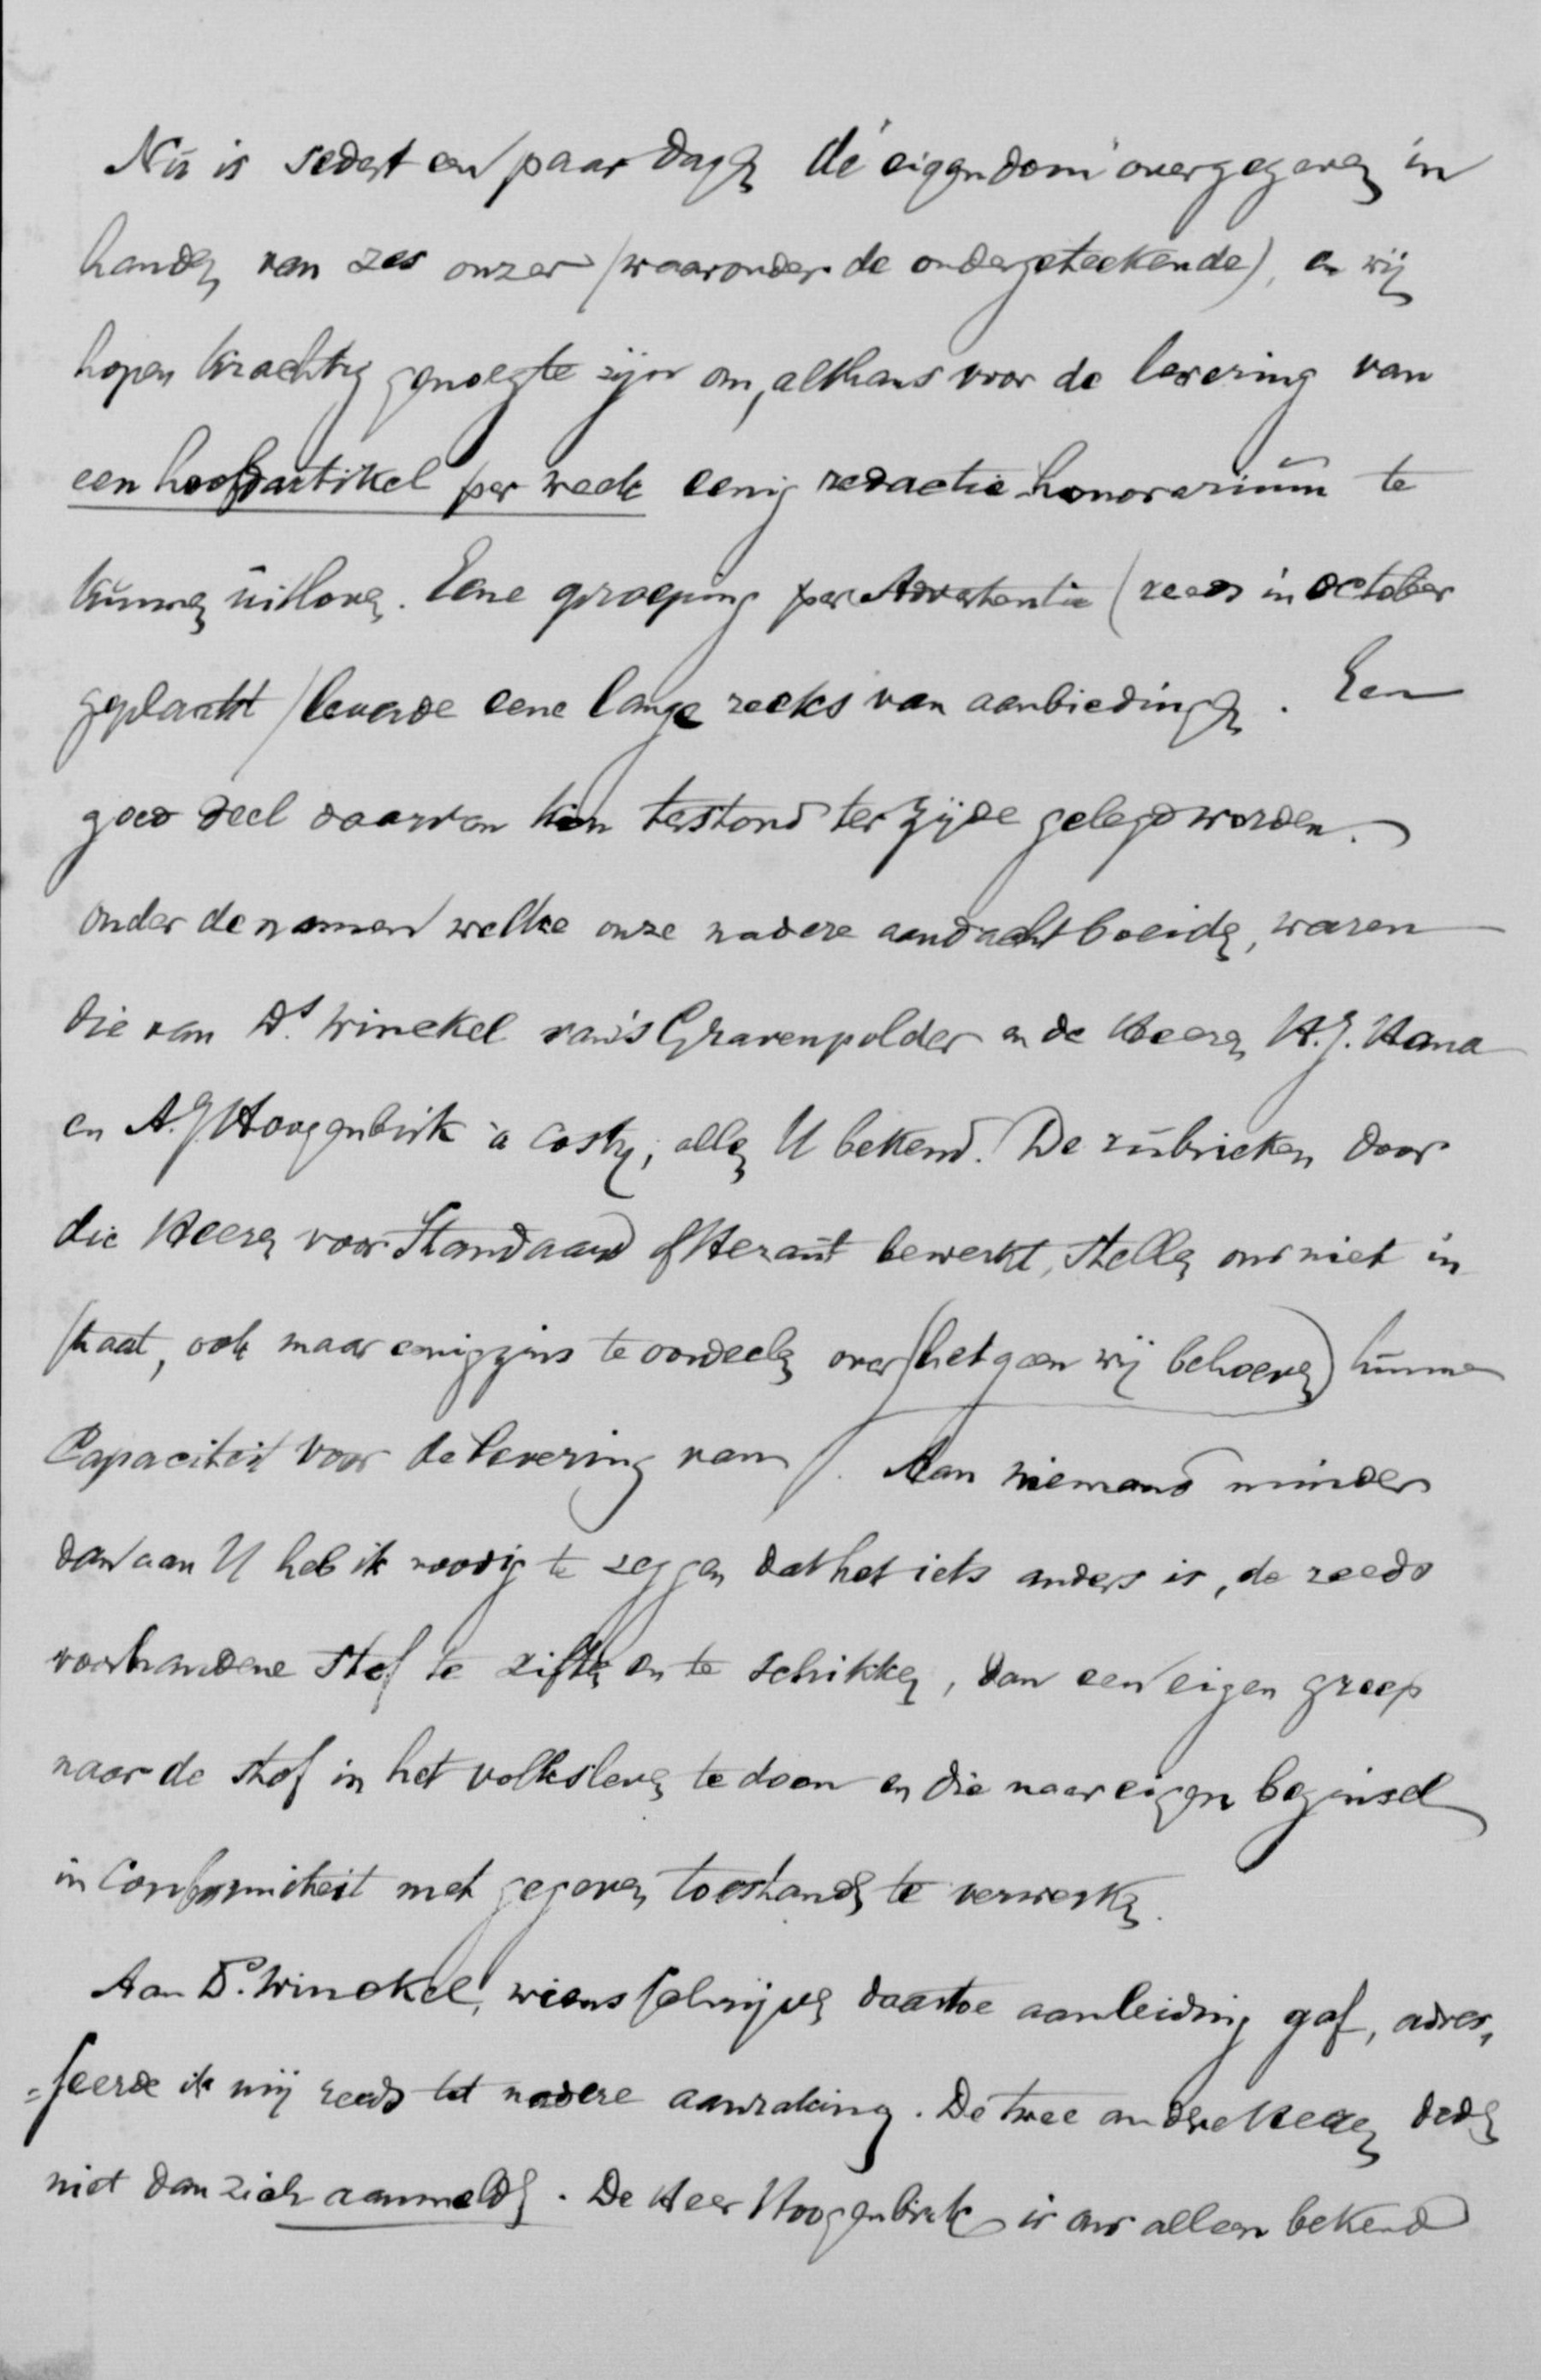 Nu is sedert een paar dagen de eigendom overgegeven in
handen van zes onzer (waaronder de ondergeteekende), en wij
hopen krachtig genoeg te zijn om, althans voor de levering van
een hoofdartikel per week eenig redactie honorarium te
kunnen uitloven. Eene oproeping per Advertentie (reeds in october
geplaatst) leverde eene lange reeks van aanbiedingen. Een
goed deel daarvan kon terstond ter zijde gelegd worden.
onder de namen welke onze nadere aandacht boeiden, waren
die van Ds. Winckel van 's Gravenpolder en de Heeren H.J. Hana
en A.J. Hoogenbirk à costy, allen U bekend. De rubrieken door
die Heeren voor Standaard of Heraut bewerkt, stellen ons niet in
staat, ook maar eenigzins te oordeelen over (hetgeen wij behoeven) hunne
Capaciteit voor de levering van /. Aan niemand minder
dan aan U heb ik noodig te zeggen dat het iets anders is, de reeds
voorhandene stof te ziften en te schikken, dan een eigen greep
naar de stof in het volksleven te doen en die naar eigen beginsel
in Conformiteit met gegeven toestanden te verwerken.
Aan Ds. Winckel, wiens schrijven daartoe aanleiding gaf, adres,
=seerde ik mij reeds tot nadere aanraking. De twee andere Heeren deden
niet dan zich aanmelden. De Heer Hoogenbirk is ons alleen bekend